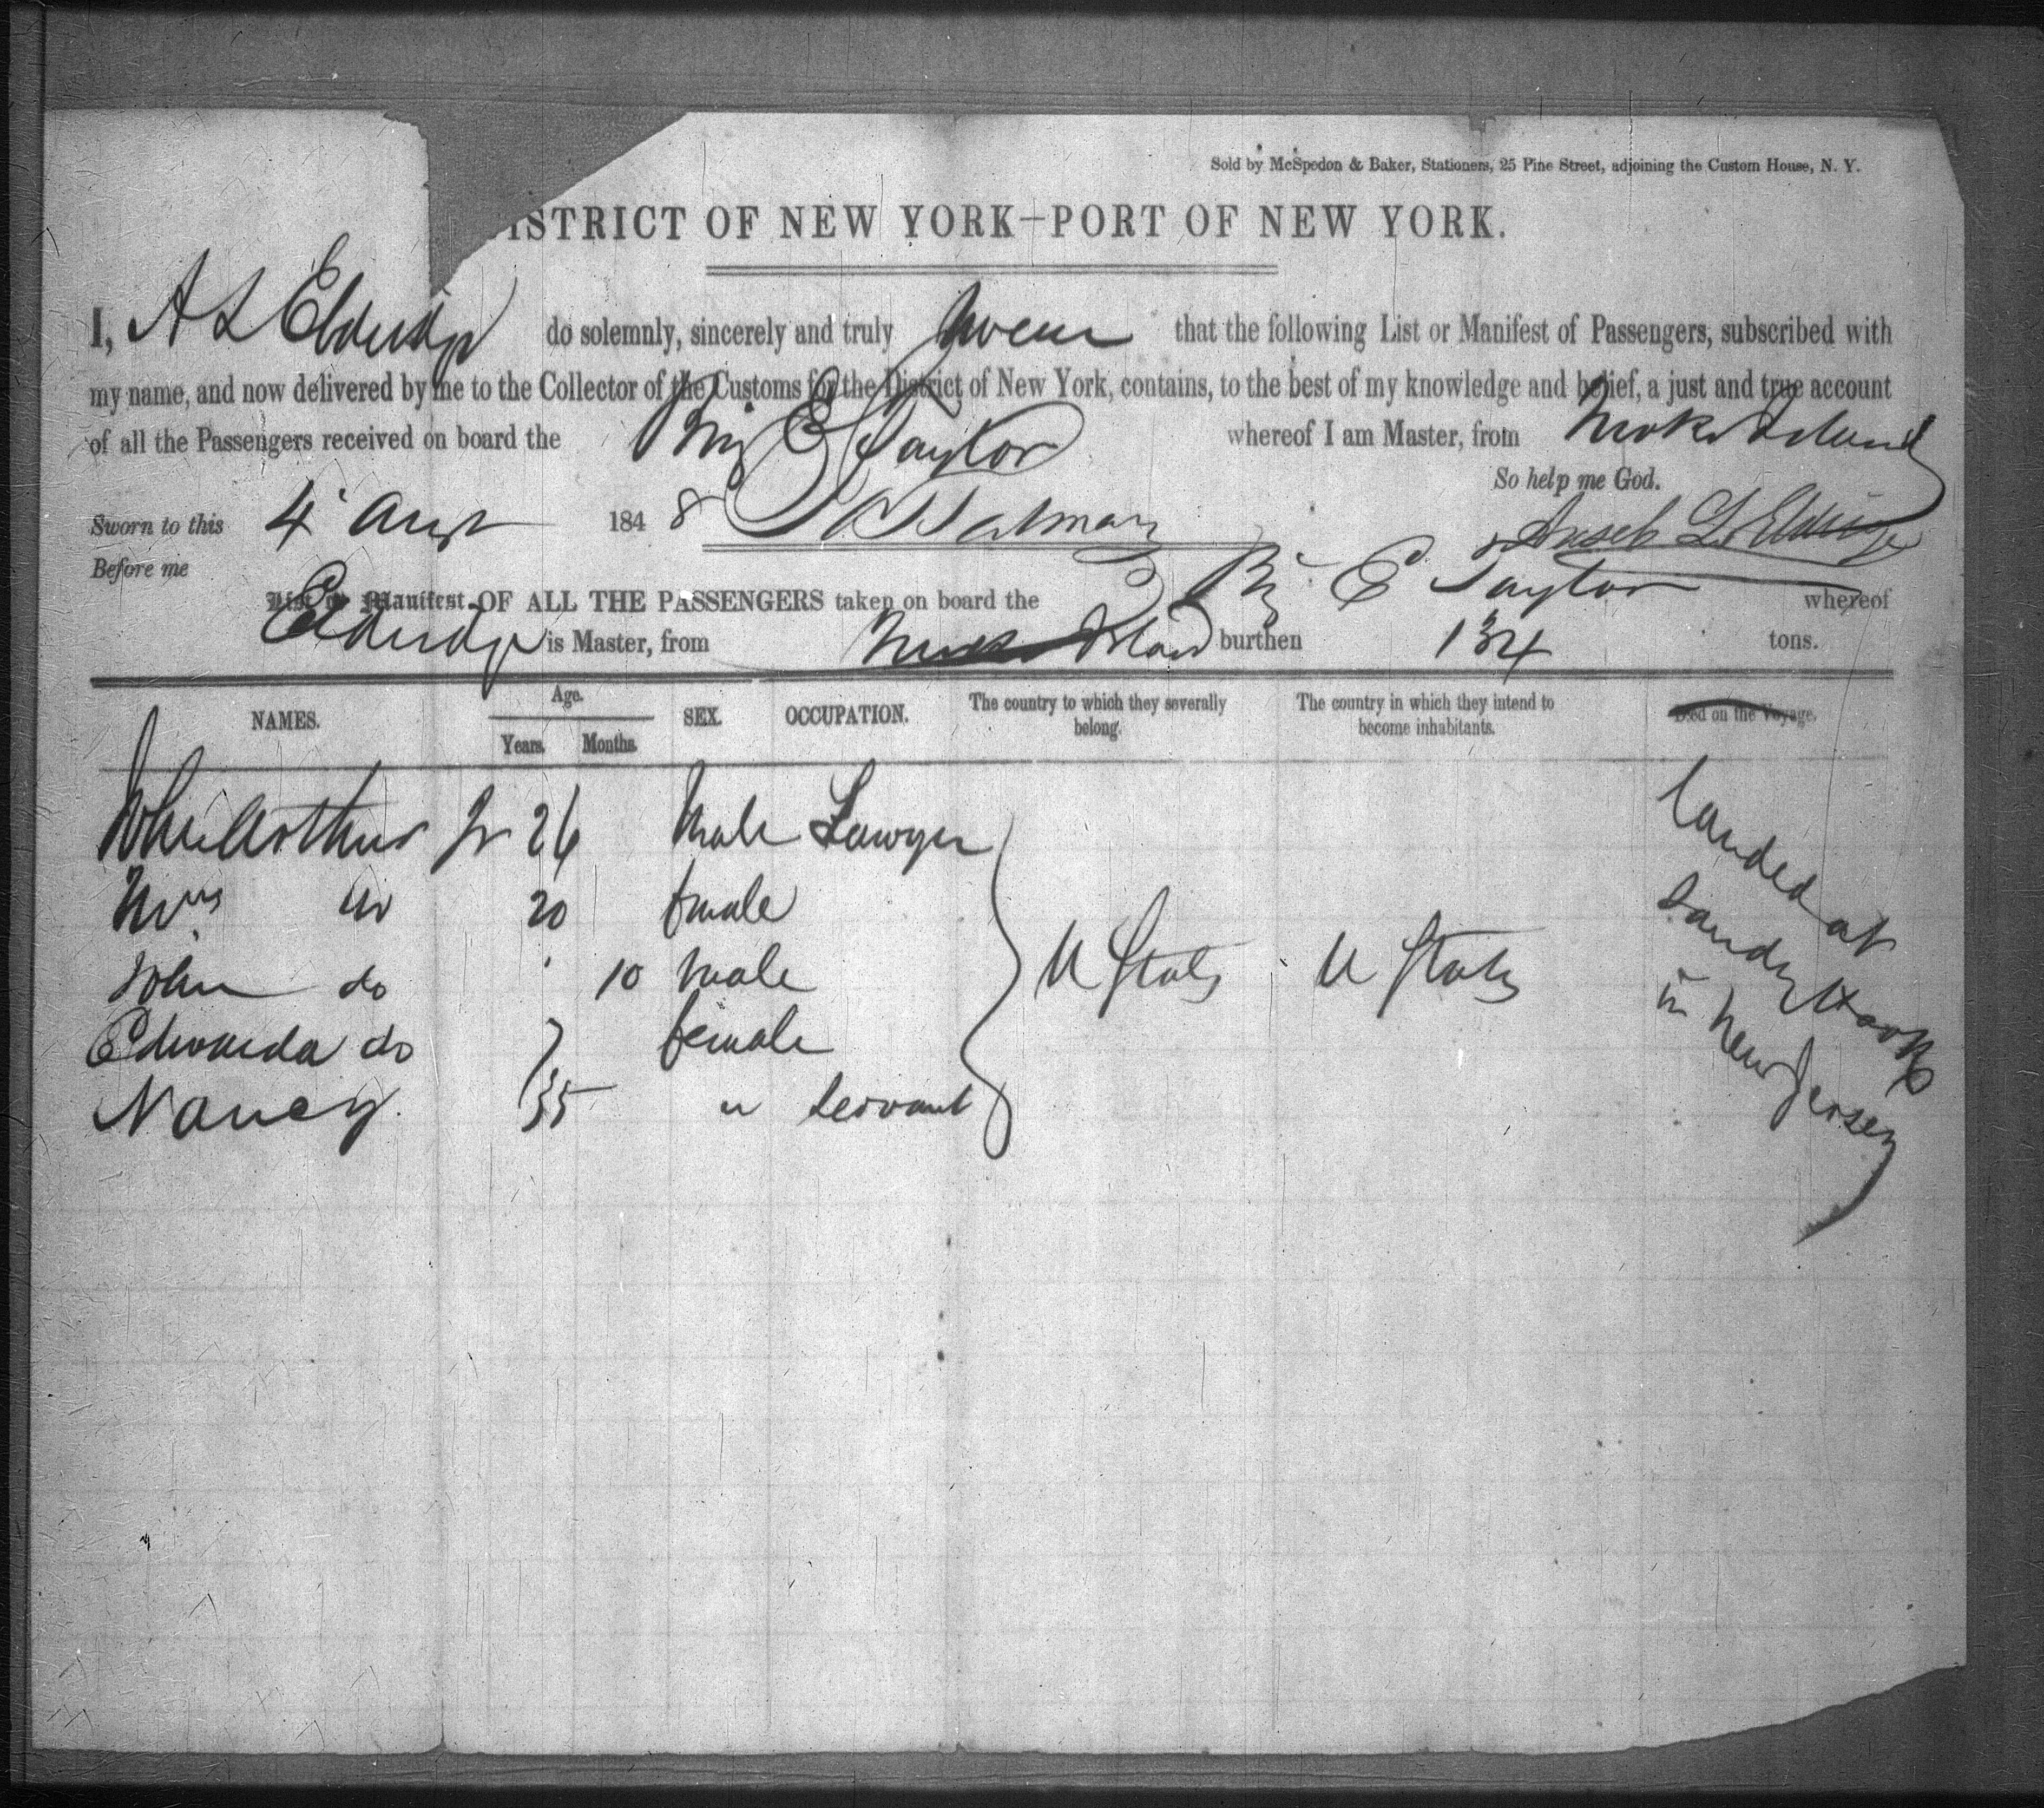 Sold by McSpedon & Baker, Stationers, 25 Pine Street, adjoining the Custom House, N. Y.
ISTRICT OF NEW YORK—PORT OF NEW YORK.
I, A L Eldridge do solemnly, sincerely and truly swear that the following List or Manifest of Passengers, subscribed with
my name, and now delivered by me to the Collector of the Customs for the District of New York, contains, to the best of my knowledge and belief, a just and true account
of all the Passengers received on board the Brig E Taylor whereof I am Master, from Turks Island
So help me God.
Sworn to this 4 Augt 1848
Before me Ansel L Eldridge
List or Manifest OF ALL THE PASSENGERS taken on board the Brig E Taylor whereof
Eldridge is Master, from Turks Island burthen 134 tons.
NAMES. Age. Years. Months. SEX. OCCUPATION. The country to which they severally belong. The country in which they intend to become inhabitants. Died on the Voyage.
Arthur Jr 26 Male Lawyer
Mrs do 20 female
John do 10 male U States U States
Edwarda do female
Nancy 35 " Servant
landed at
Sandy Hook
in New Jersey